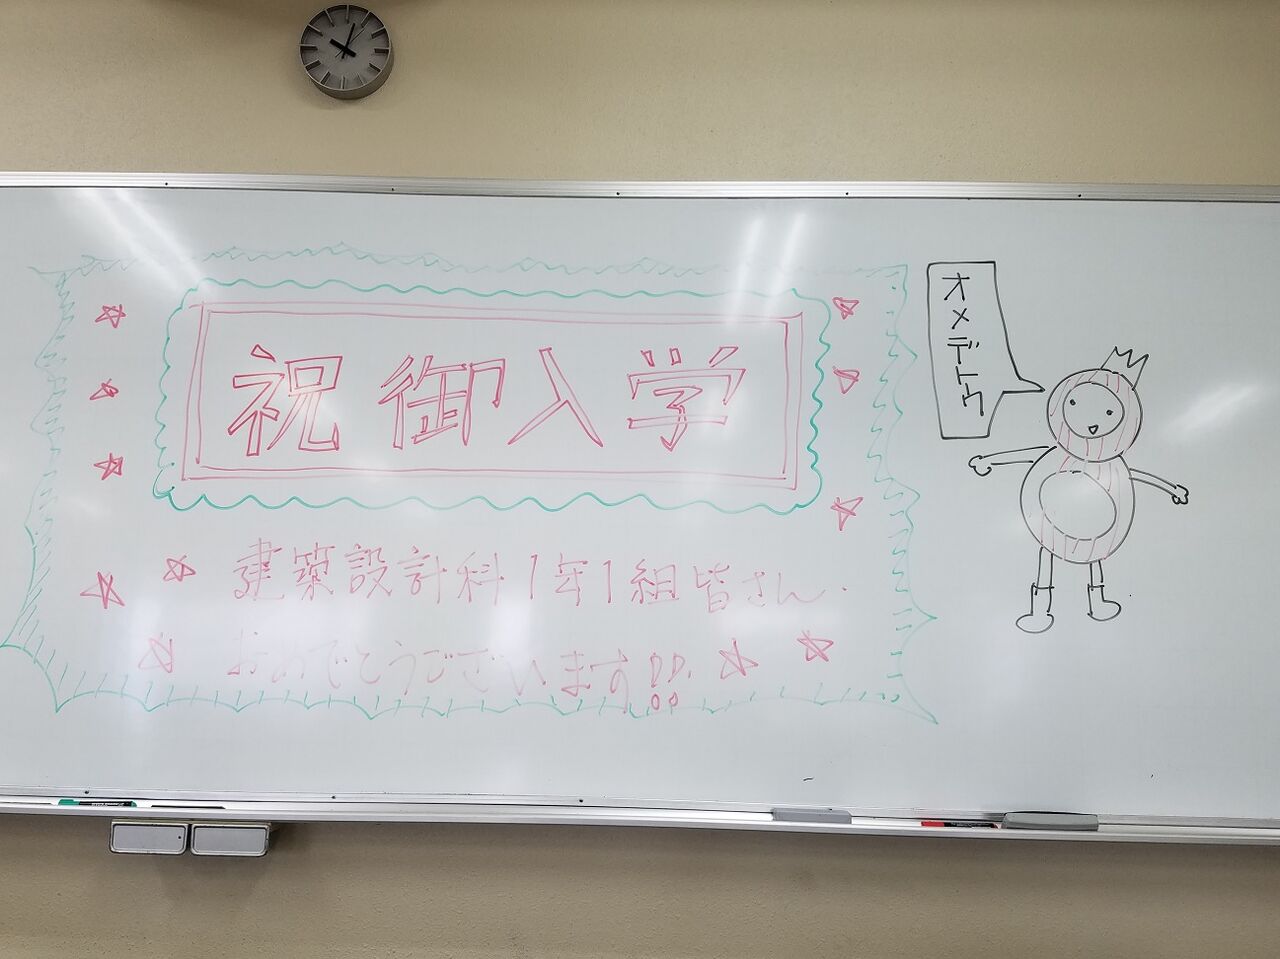 祝御入学
建築設計科1年1組皆さん.
おめでとうございます!!
オメデトウ